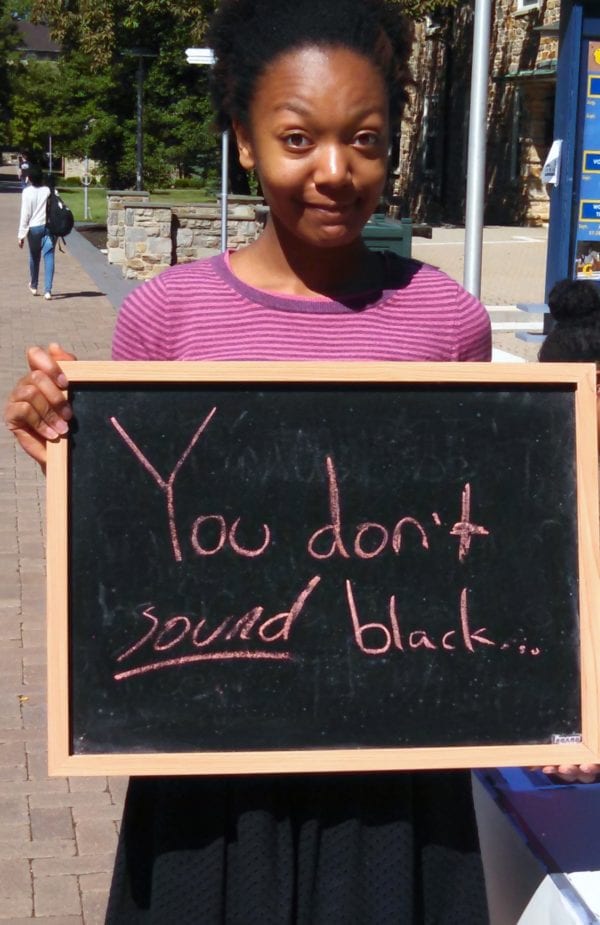 You don't
sound black...